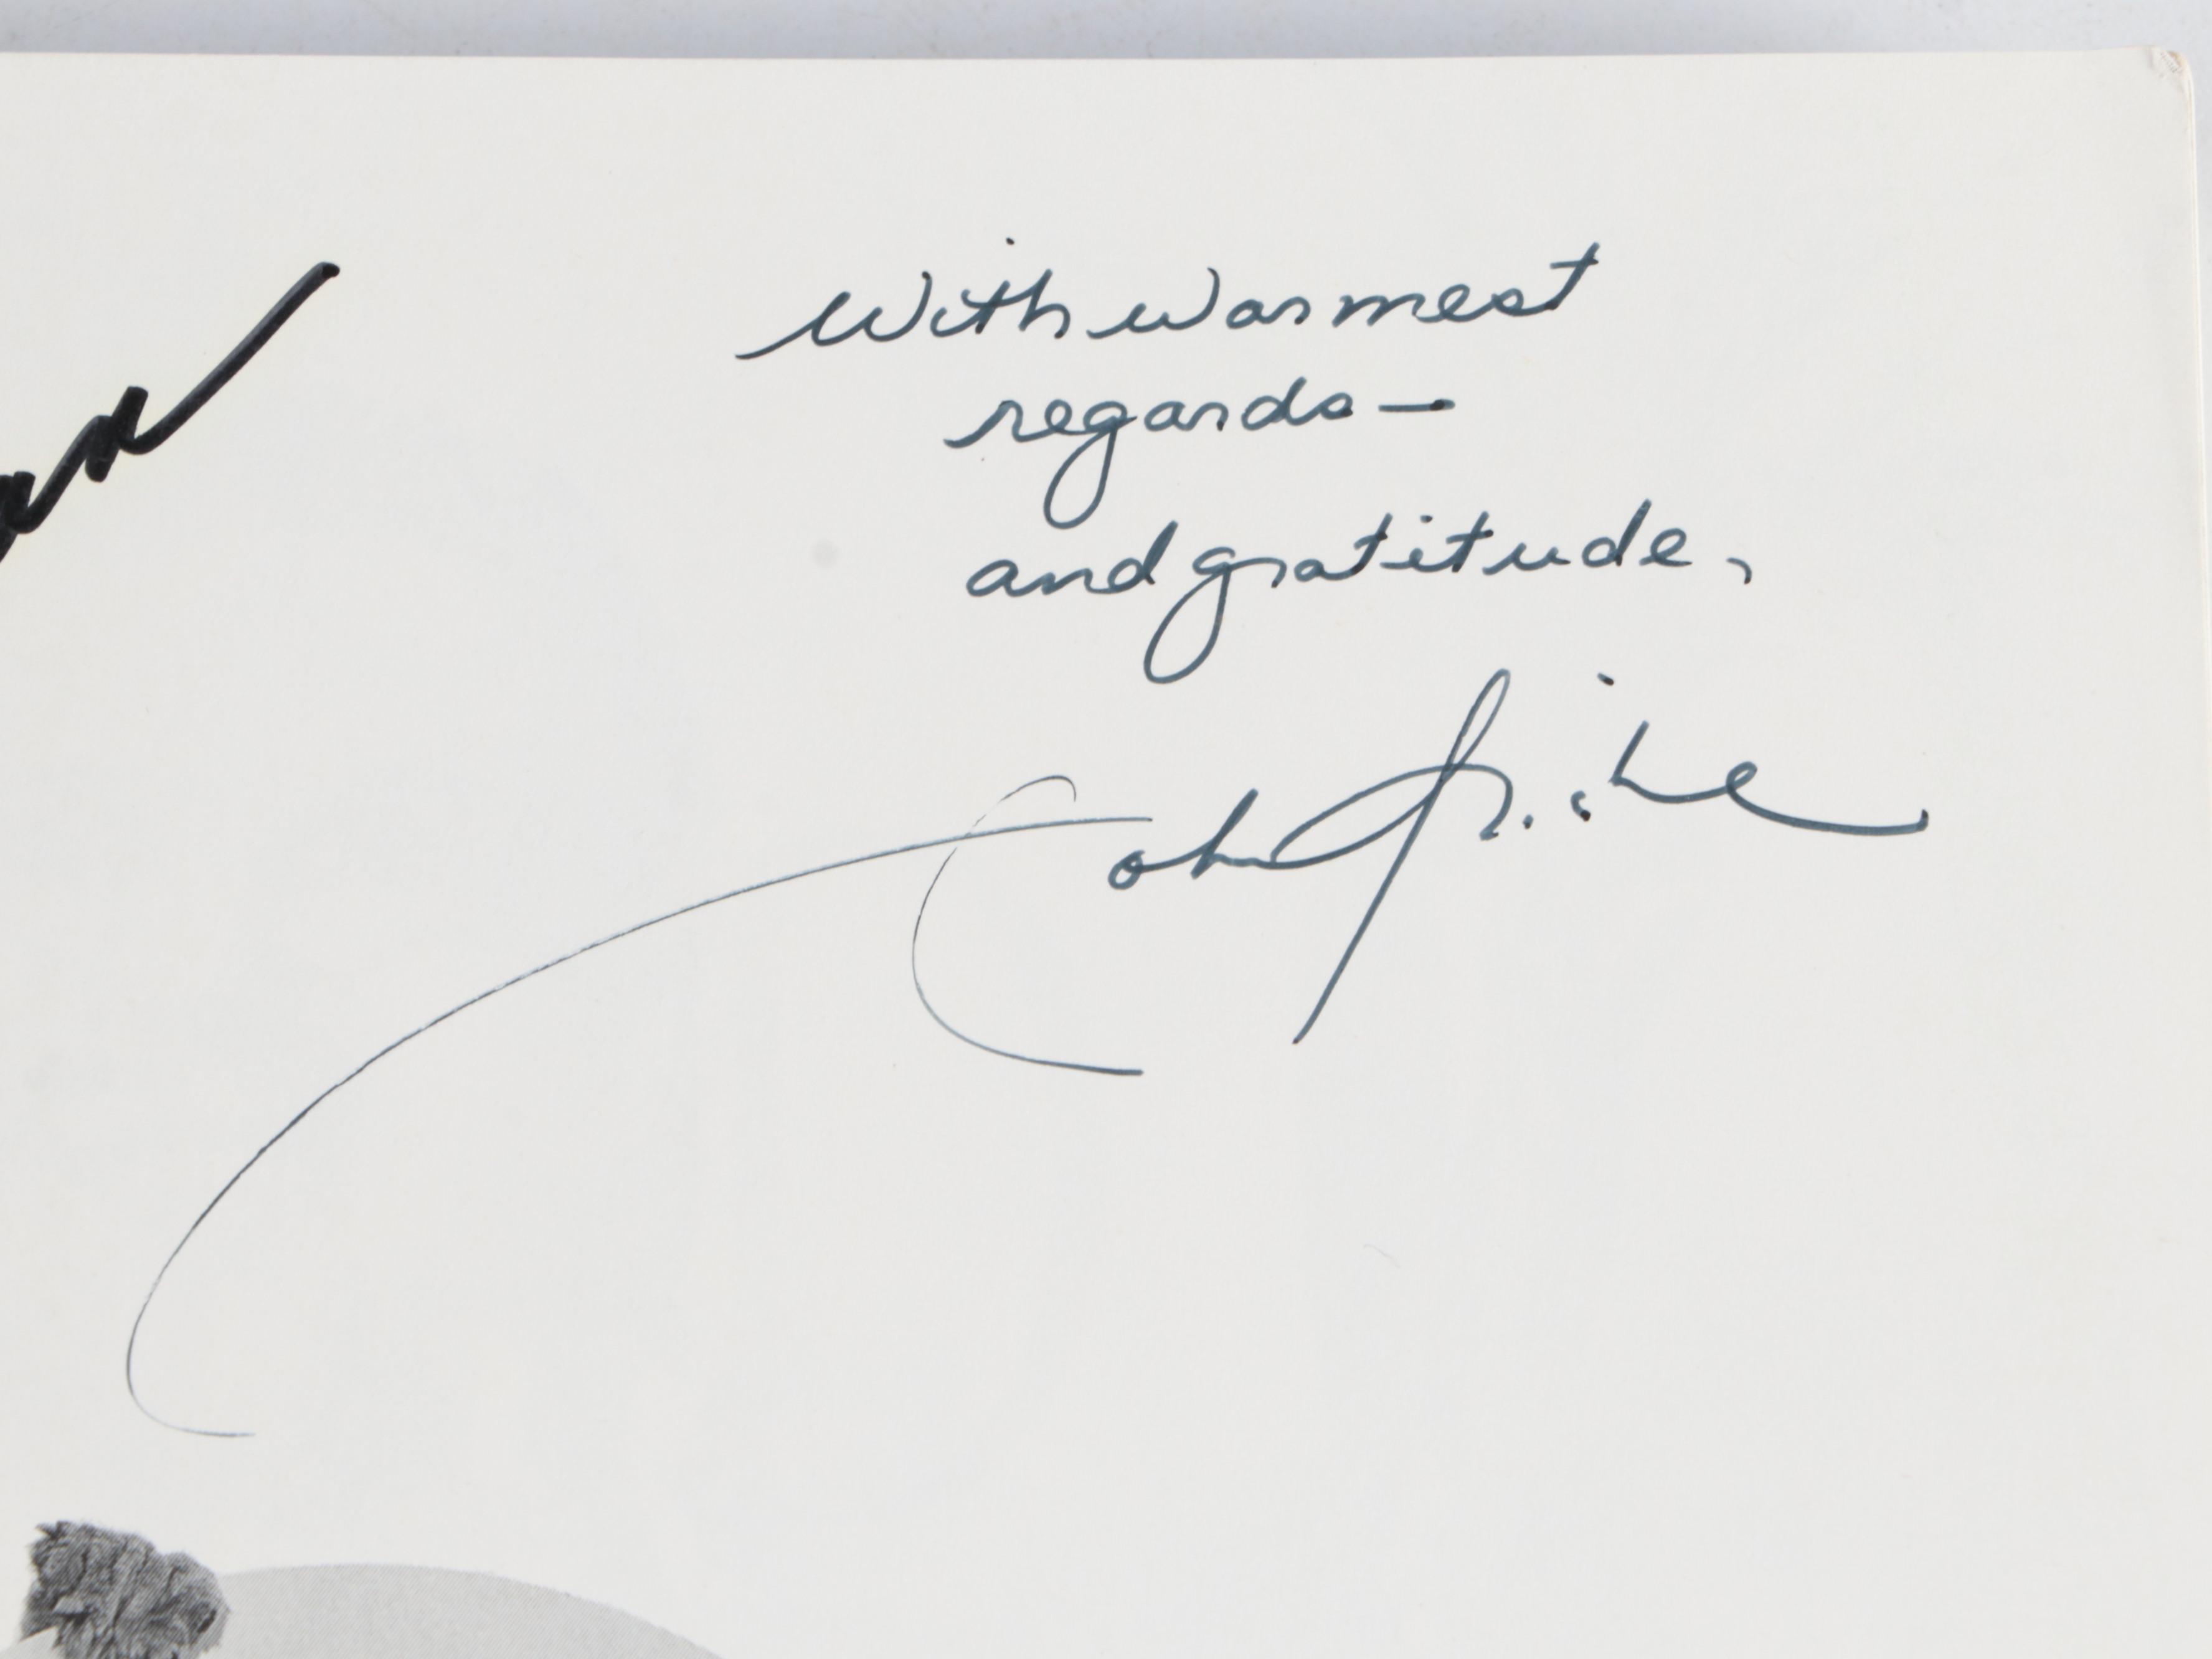 With warmest
regards—
and gratitude,
John